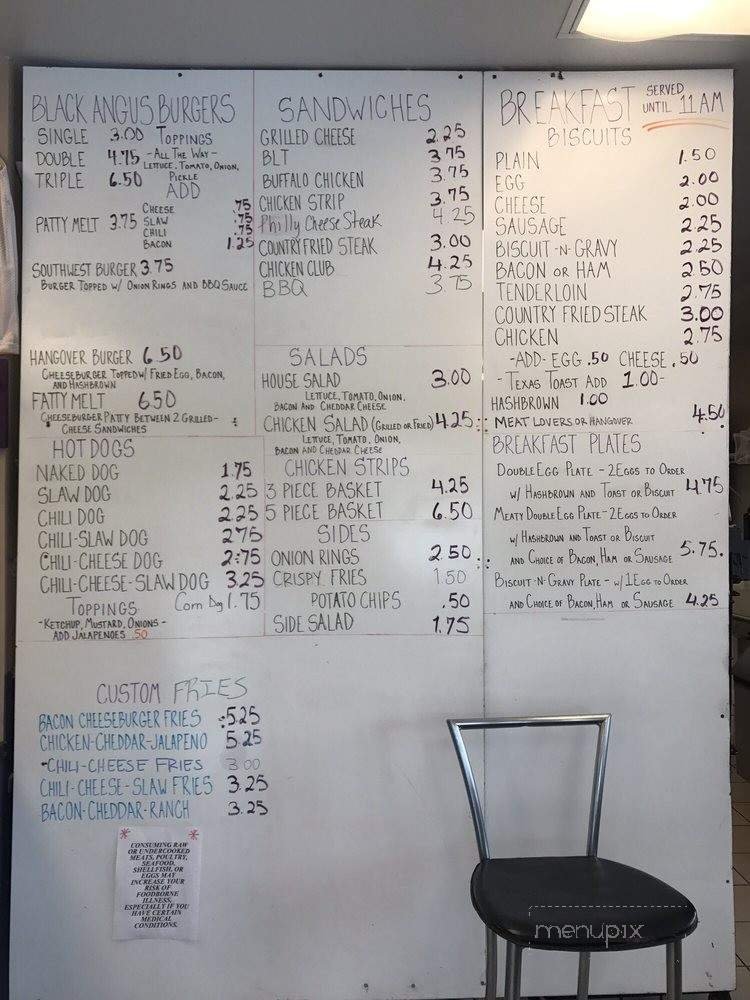 BLACK ANGUS BURGERS
SINGLE 3.00 TOPPINGS
DOUBLE 4.75 -ALL THE WAY-
LETTUCE, TOMATO, ONION,
TRIPLE 6.50 PICKLE
ADD
CHEESE .75
PATTY MELT 3.75 SLAW .75
CHILI .75
BACON 1.25
SOUTHWEST BURGER 3.75
BURGER TOPPED W/ ONION RINGS AND BBQ SAUCE
HANGOVER BURGER 6.50
CHEESEBURGER TOPPED W/ FRIED EGG, BACON,
AND HASHBROWN
FATTY MELT 6.50
CHEESEBURGER PATTY BETWEEN 2 GRILLED-
CHEESE SANDWICHES
HOT DOGS
NAKED DOG 1.75
SLAW DOG 2.25
CHILI DOG 2.25
CHILI-SLAW DOG 2.75
CHILI-CHEESE DOG 2.75
CHILI-CHEESE-SLAW DOG 3.25
TOPPINGS Corn Dog 1.75
-KETCHUP, MUSTARD, ONIONS-
ADD JALAPENOES 50
CUSTOM FRIES
BACON CHEESEBURGER FRIES 5.25
CHICKEN-CHEDDAR-JALAPENO 5.25
CHILI-CHEESE FRIES 3.00
CHILI-CHEESE-SLAW FRIES 3.25
BACON-CHEDDAR-RANCH 3.25
* *
CONSUMING RAW
OR UNDERCOOKED
MEATS, POULTRY,
SEAFOOD,
SHELLFISH, OR
EGGS MAY
INCREASE YOUR
RISK OF
FOODBORNE
ILLNESS,
ESPECIALLY IF YOU
HAVE CERTAIN
MEDICAL
CONDITIONS.
SANDWICHES
GRILLED CHEESE 2.25
BLT 3.75
BUFFALO CHICKEN 3.75
CHICKEN STRIP 3.75
Philly Cheese Steak 4.25
COUNTRY FRIED STEAK 3.00
CHICKEN CLUB 4.25
BBQ 3.75
SALADS
HOUSE SALAD 3.00
LETTUCE, TOMATO, ONION,
BACON AND CHEDDAR CHEESE
CHICKEN SALAD (GRILLED OR FRIED) 4.25
LETTUCE, TOMATO, ONION,
BACON AND CHEDDAR CHEESE
CHICKEN STRIPS
3 PIECE BASKET 4.25
5 PIECE BASKET 6.50
SIDES
ONION RINGS 2.50
CRISPY FRIES 1.50
POTATO CHIPS .50
SIDE SALAD 1.75
BREAKFAST SERVED
UNTIL 11 AM
BISCUITS
PLAIN 1.50
EGG 2.00
CHEESE 2.00
SAUSAGE 2.25
BISCUIT-N-GRAVY 2.25
BACON OR HAM 2.50
TENDERLOIN 2.75
COUNTRY FRIED STEAK 3.00
CHICKEN 2.75
-ADD- EGG .50 CHEESE .50
-TEXAS TOAST ADD 1.00-
HASHBROWN 1.00
MEAT LOVERS OR HANGOVER 4.50
BREAKFAST PLATES
DOUBLE EGG PLATE - 2 EGGS TO ORDER
W/ HASHBROWN AND TOAST OR BISCUIT 4.75
MEATY DOUBLE EGG PLATE - 2 EGGS TO ORDER
W/ HASHBROWN AND TOAST OR BISCUIT
AND CHOICE OF BACON, HAM OR SAUSAGE 5.75.
BISCUIT-N-GRAVY PLATE - W/ 1 EGG TO ORDER
AND CHOICE OF BACON, HAM OR SAUSAGE 4.25
menupix